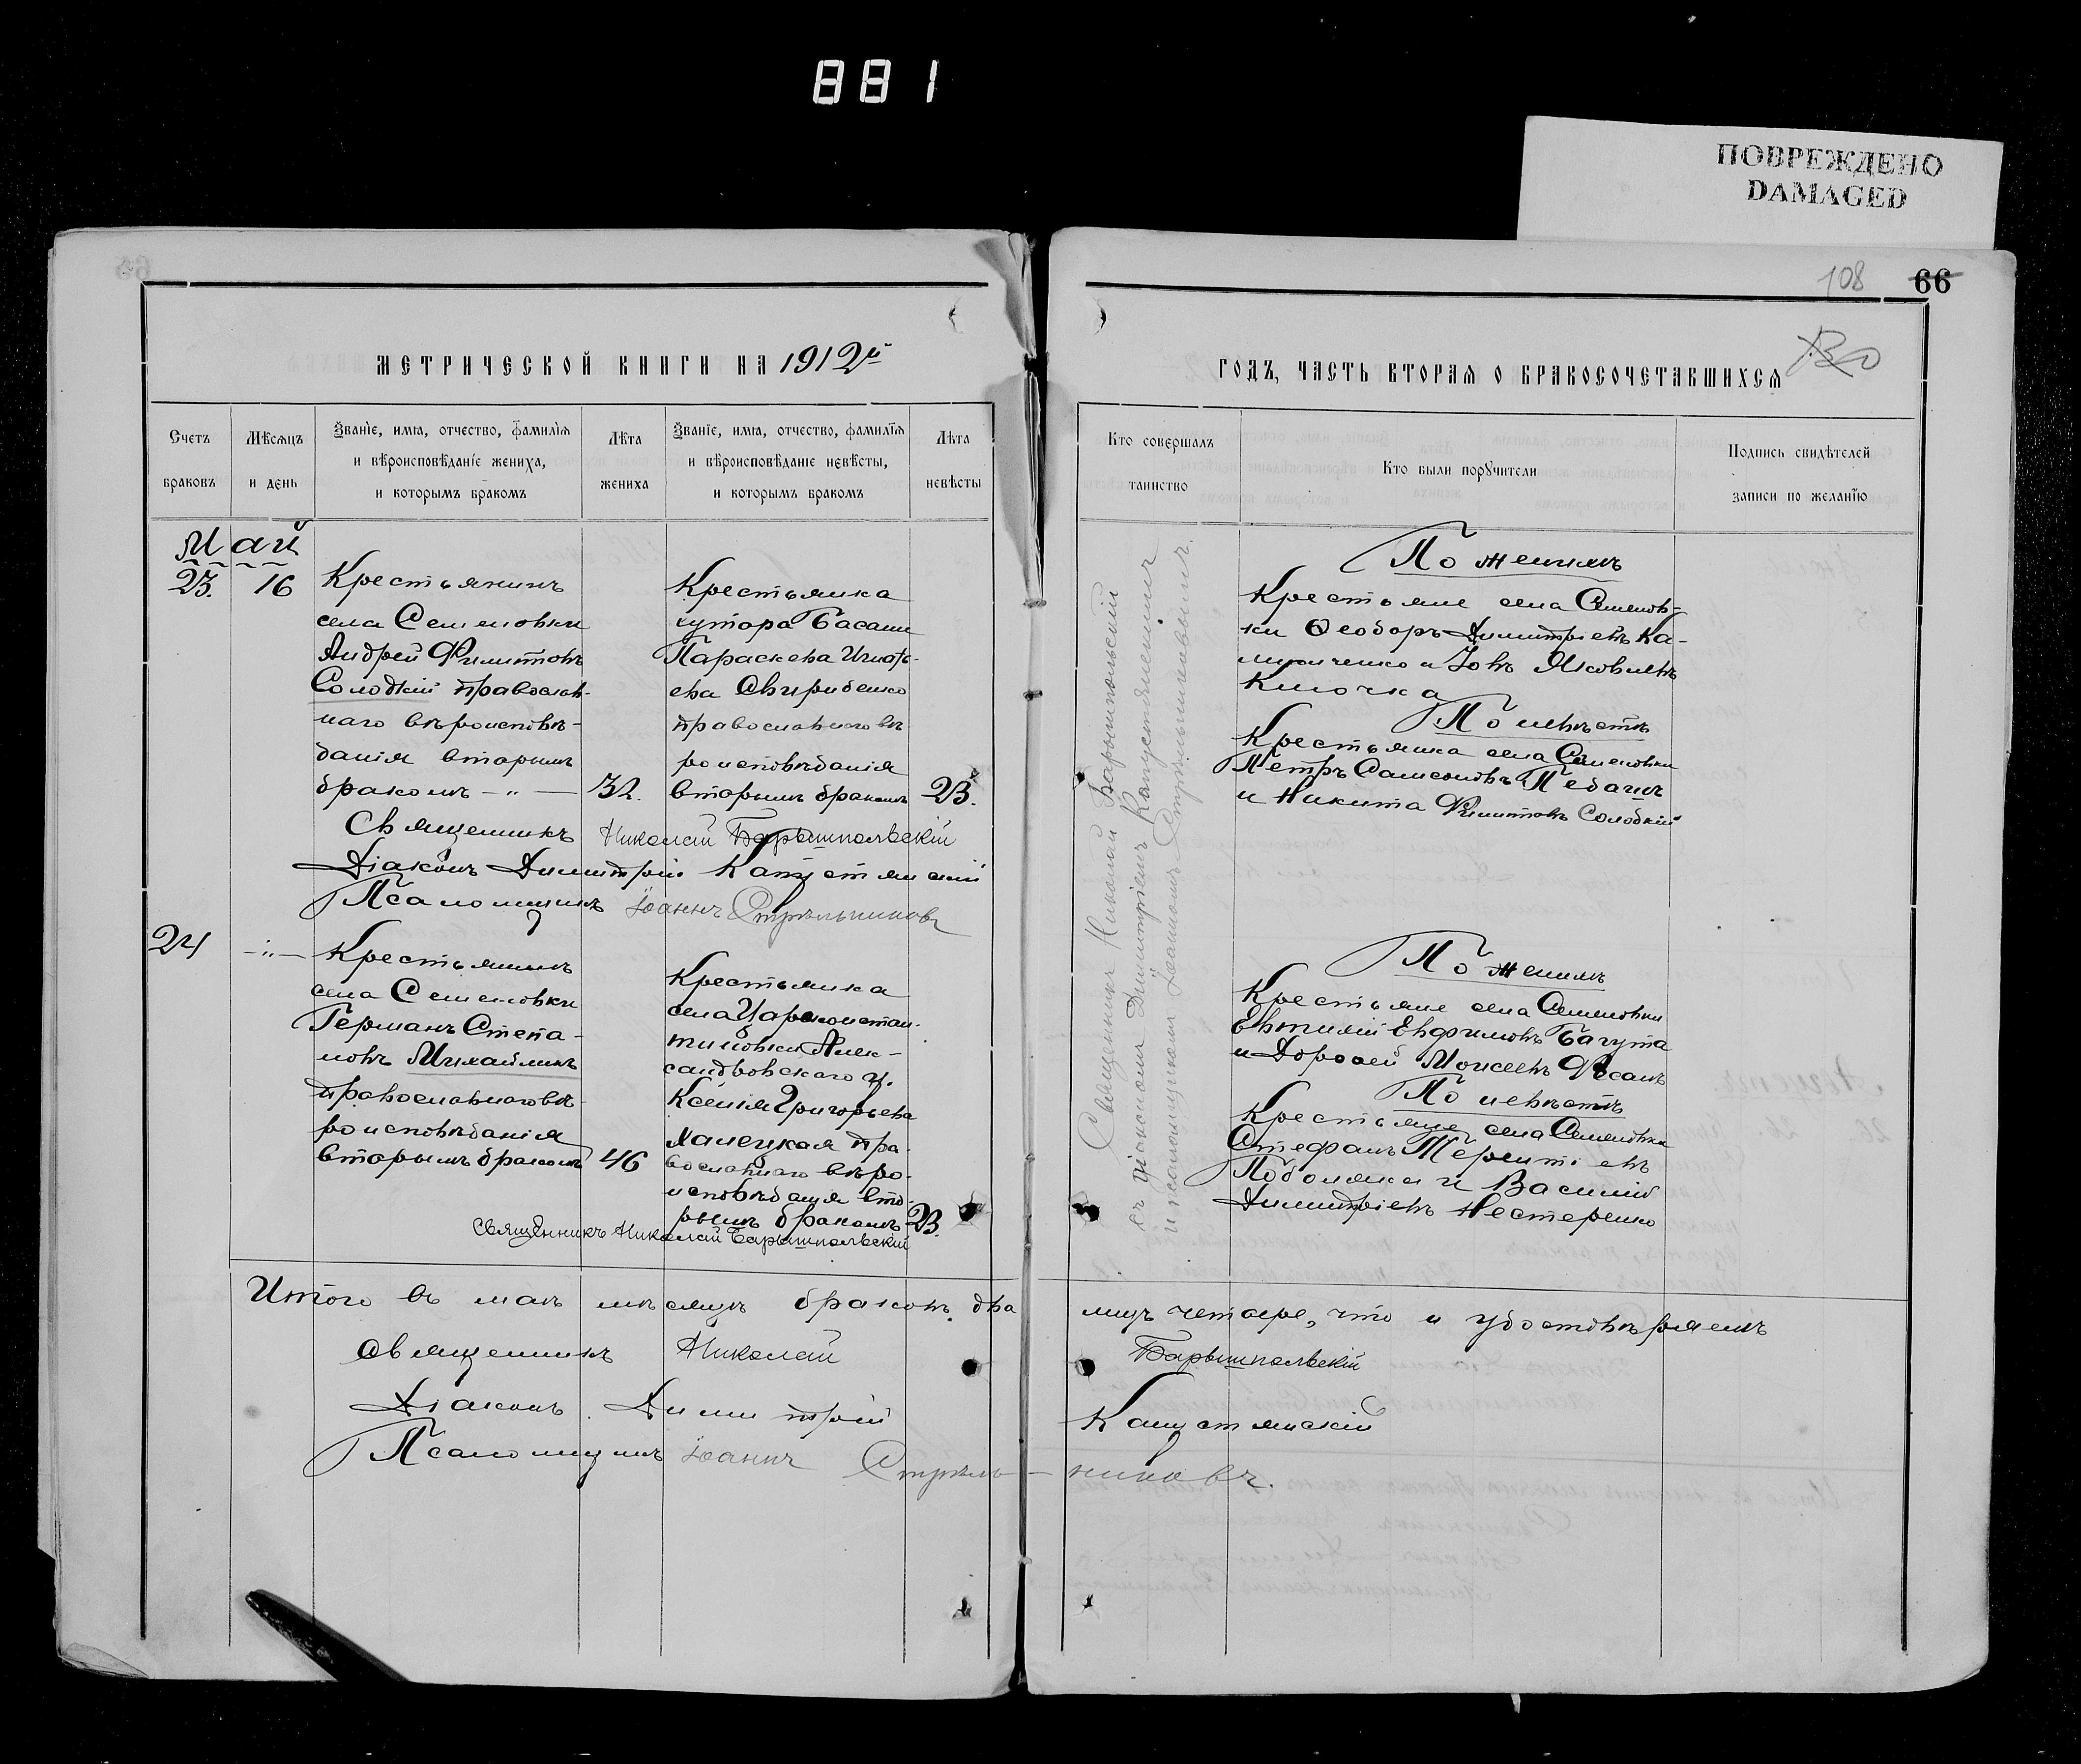 881
ПОВРЕЖДЕНО
DAMAGED
108 66
МЕТРИЧЕСКОЙ КНИГИ НА 1912й
Счетъ
браковъ
Мѣсяцъ
и день
Званіе, имя, отчество, фамилія
и вѣроисповѣданіе жениха,
и которымъ бракомъ
Лѣта
жениха
Званіе, имя, отчество, фамилія
и вѣроисповѣданіе невѣсты,
и которымъ бракомъ
Лѣта
невѣсты
Май
23. 16
Крестьянинъ
села Семеновки
Андрей Филиповъ
Солодкій православ-
наго вѣроисповѣ-
данія вторымъ
бракомъ - " -
32.
Крестьянка
хутора Басани
Параскева Игнать-
ева Свириденко
православнаго вѣ
роисповѣданія
вторымъ бракомъ
23.
Священникъ Николай Барышпольскій
Діаконъ Димитрій Капустянскій
Псаломщикъ Іоаннъ Стрѣльниковъ
24 - " -
Крестьянинъ
села Семеновки
Германъ Степа-
новъ Михайликъ
православнаго вѣ-
роисповѣданія
вторымъ бракомъ
46
Крестьянка
села Цареконстан-
тиновки Алек-
сандровскаго у.
Ксенія Григорьева
пра-
вославнаго вѣро-
исповѣданія вто-
рымъ бракомъ
23.
Священникъ Николай Барышпольскій
Итого въ маѣ мѣсяцѣ браковъ два
Священникъ Николай
Діаконъ Димитрій
Псаломщикъ Іоаннъ Стрѣль-
ГОДЪ, ЧАСТЬ ВТОРАЯ О БРАКОСОЧЕТАВШИХСЯ
Кто совершалъ
таинство
Кто были поручители
Подпись свидѣтелей
записи по желанію
Священникъ Николай Барышпольскій
съ діакономъ Димитріемъ Капустянскимъ
и псаломщикомъ Іоанномъ Стрѣльниковымъ.
По женихѣ
Крестьяне села Семенов-
ки Ѳеодоръ Димитріевъ Ка-
и Іовъ Яковлевъ
Клочка
По невѣстѣ
Крестьянка села Семеновки
Петръ Самсоновъ
и Никита Филиповъ Солодкій
По женихѣ
Крестьяне села Семеновки
Евтихій Евфимовъ Багута
и Дороѳей Моисеевъ
По невѣстѣ
Крестьяне села Семеновки
Стефанъ Терентіевъ
Подоляка и Василій
Димитріевъ Нестеренко
цать четыре, что и удостовѣряемъ
Барышпольскій
Капустянскій
никовъ.